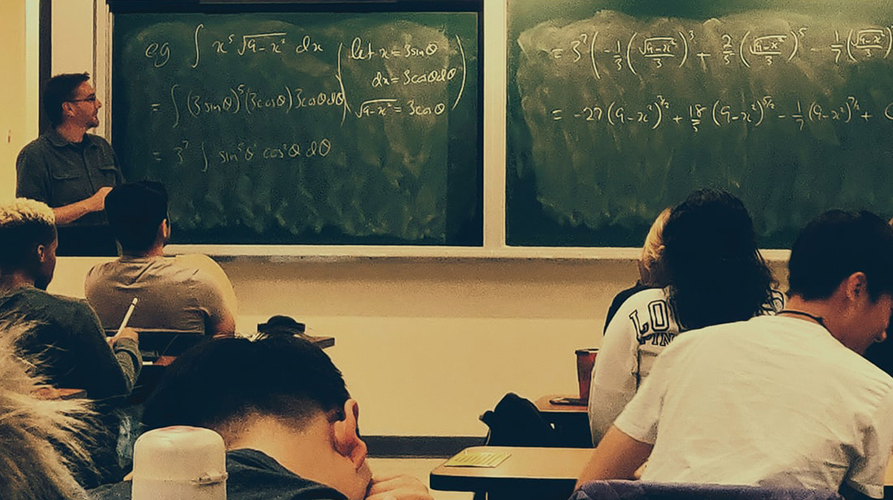 eg ∫ x⁵ √(9-x²) dx (let x = 3sinθ
dx = 3cosθdθ
√(9-x²) = 3cosθ)
= ∫ (3sinθ)⁵ (3cosθ) 3cosθdθ
= 3⁷ ∫ sin⁵θ cos²θ dθ
= 3⁷ (-1/3 (√(9-x²)/3)³ + 2/5 (√(9-x²)/3)⁵ - 1/7 (√(9-x²)
= -27 (9-x²)^(3/2) + 18/5 (9-x²)^(5/2) - 1/7 (9-x²)^(7/2) +
LO